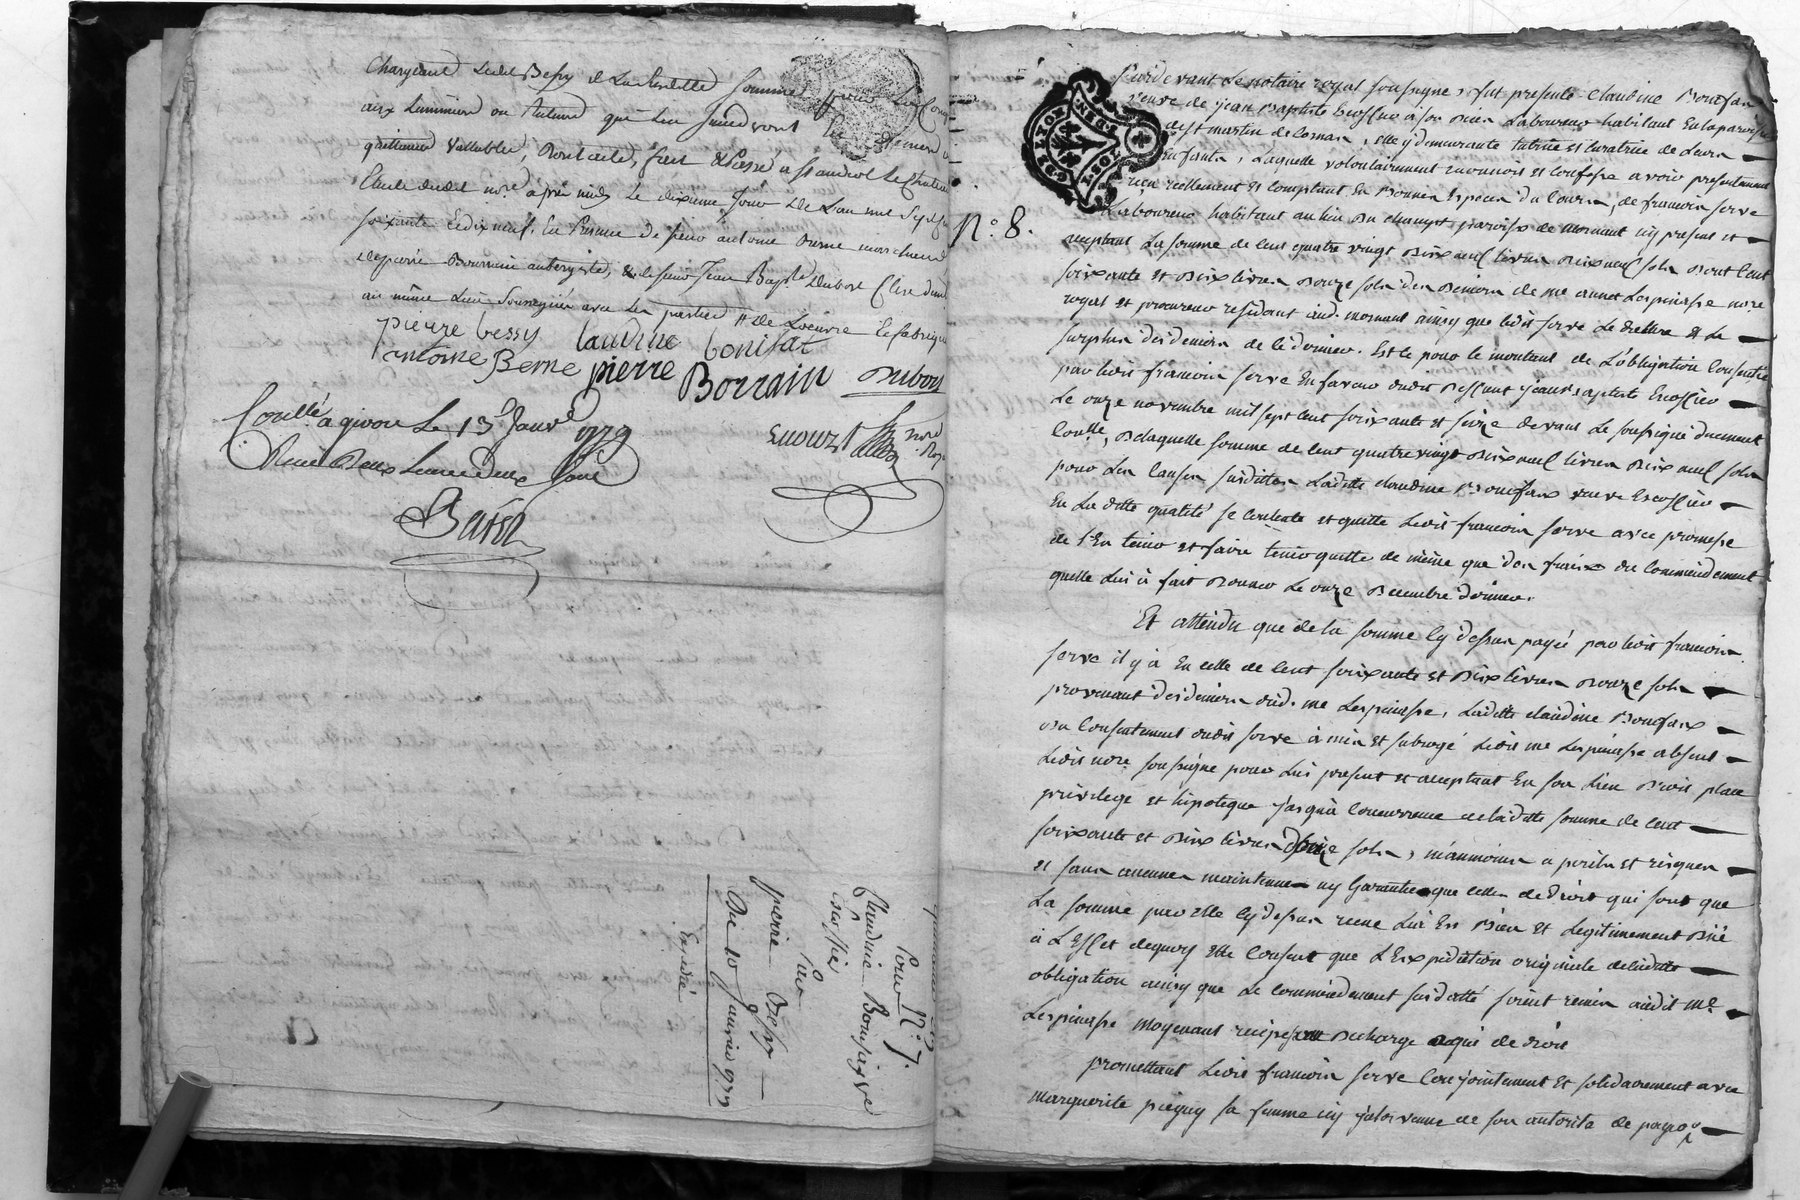 Chargeant ledit Bessy de La Susditte Somme pour
aux Lumiere ou Autours que les Susd.
quittance Vallables, Dont acte, fait & Passé a St andeol le Chateau
Etude dudit nore. après midy Le dixieme Jour de L'an mil Sept
soixante Et dix neuf, En Presence de sieur antoine Berne marchand
Pierre Borrain aubergiste, & le sieur Jean Bapte. Dubost Clerc
au même Lieu Soussignés avec les parties
pierre bessy laudine bonifat
antoine Berne pierre Borrain Dubost
Coullé a givors Le 13 Janv. 1779
Reçu
N°. 7.
Pour
Claudine Bonifax ve
par
pierre Bessy
Du 10 Janvier 1779
Expédié
GEN. LYON
N°. 8.
Pardevant Le notaire royal soussigné, fut presente Claudine Bonifax
veuve de jean Baptiste Escoffier à son vivant Laboureur habitant En la paroisse
de st martin de Cornas, elle y demeurante tutrice et curatrice de Leurs
Enfants, Laquelle volontairement reconnoit et confesse avoir presentement
reçu reellement et comptant En Bonnes Especes du Cours, de francois serve
Laboureur habitant au lieu du champt paroisse de mornant icy present et
acceptant La somme de Cent quatre vingt Dix neuf livres Dix neuf sols Dont Cent
soixante et Dix livres Douze sols des Deniers de me annet Lespinasse nore.
royal et procureur residant aud. mornant ainsy que ledit serve Le declare & Le
surplus des deniers de le dernier. Et ce pour le montant de L'obligation Consentie
par ledit francois serve En faveur dudit Deffunt jean baptiste Escoffier
Le onze novembre mil sept cent soixante et seize devant Le soussigné duement
Coullé, De laquelle somme de Cent quatre vingt Dix neuf livres Dix neuf sols
pour Les Causes susdittes Laditte claudine Bonifax veuve Escoffier
En La ditte qualité se contente et quitte Ledit francois serve avec promesse
de L'En tenir et faire tenir quitte de même que des fraix du Commandement
quelle Lui à fait Donner Le onze Decembre dernier.
Et attendu que de la somme Cy dessus payée par ledit francois
serve il y à En celle de Cent soixante et Dix livres Douze sols
provenant des deniers dud. me Lespinasse, Laditte claudine Bonifax
Du Consentement dudit serve à mis et subrogé Ledit me Lespinasse absent
Ledit nore soussigné pour Lui present et acceptant En son Lieu Droit place
privilege et hipoteque jusqu'à Concurrence de laditte somme de Cent
soixante et Dix livres Douze sols, néanmoins a perils et risques
et sans aucunes maintenue ny Garantie que celles de droit qui sont que
La somme par elle Cy dessus reçue Lui Est Bien et Legitimement Duë
à L'Effet dequoy elle Consent que L'Expedition originale de laditte
obligation ainsy que Le Commendement susdatté soient remis audit me.
Lespinasse moyenant recepissé Decharge a qui de droit
promettant Ledit francois serve Conjointement et solidairement avec
marguerite piegay sa femme icy jntervenue de son autorité de payer